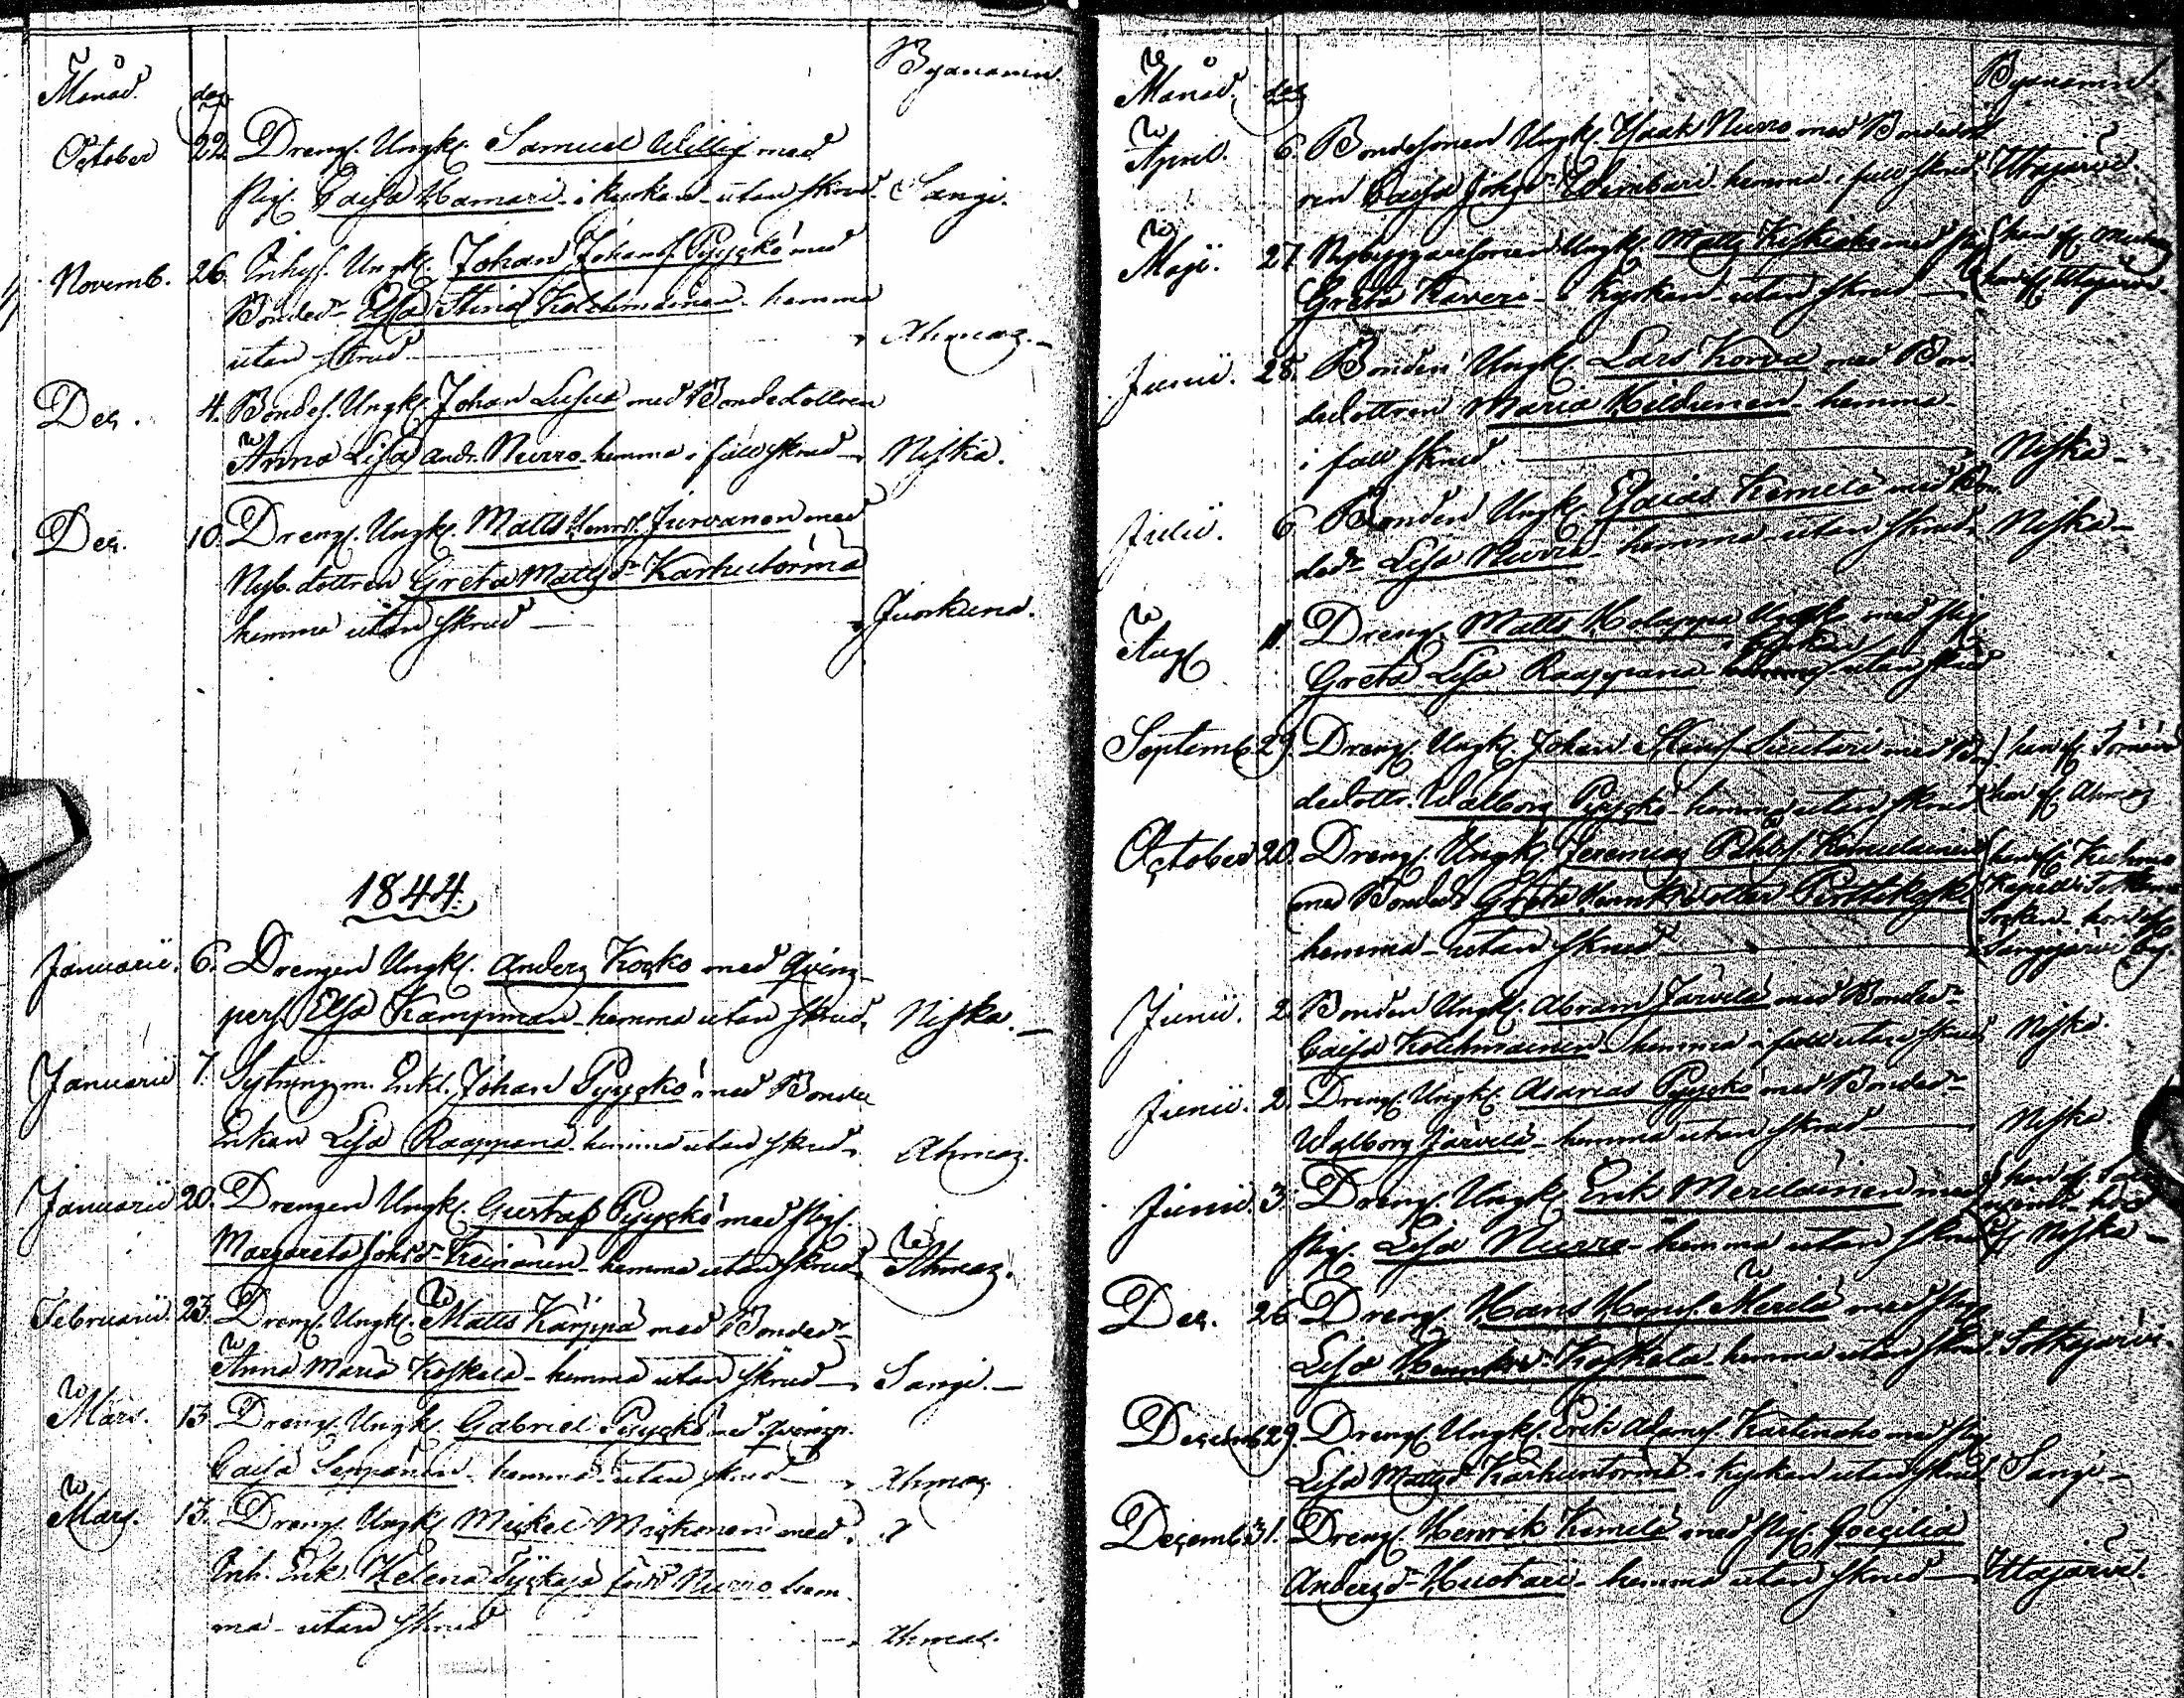 Månad. dag. Byanamn.
October 22. Drengˢ. Ungk. Samuel Willig med
Pig. Caisa Hamari - i kyrkan - utan skrud. Sangi.
Novemb. 26. Inhys. Ungk. Johan Johans. Pyyckö med
Bonded:r Elsa Stina Kolehmainen - hemma
utan skrud Ahmas.
Dec. 4. Bondes. Ungk. Johan Lusua med Bondedottren
Anna Lisa Andr. Nurro hemma i full skrud Niska.
Dec. 10. Dreng. Ungk. Matts Henrs. Jurvanen med
Nyb. dottren Greta Matts d:r Karhutörmä
hemma utan skrud Juorkuna.
1844.
Januarii. 6. Drengen Ungk. Anders Kocko med qvins
pers. Elsa Kampman - hemma utan skrud. Niska.
Januarii 7. Sytningsm. Enkl. Johan Pyyckö med Bonde
Enkan Lisa Raappana hemma utan skrud Ahmas.
Januarii 20. Drengen Ungk. Gustaf Pyyckö med Pig.
Margareta Johsd:r Keinänen - hemma utan skrud Ahmas.
Februarii. 23. Dreng. Ungk. Matts Kärppä med Bonded:r
Anna Maria Koskela - hemma utan skrud Sangi.
Mars. 13. Dreng. Ungk. Gabriel Pyyckö med qvinsp.
Caisa Seppänen - hemma - utan skrud Ahmas
Mars. 13. Dreng. Ungk. Mickel Mickonen med
Inh. Enk. Helena född Nurro hem
ma - utan skrud Ahmas.
Månad. dag Byanamn.
April. 6. Bondesonen Ungk. Isaak Nurro med Bondedott
ren Caisa Johs d:r hemma i full skrud Utajärvi.
Maji. 27. Nybyggaresonen Ungk. Matts Kiskiaho med Pig han fr.
Greta Kaveri - i Kyrkan - utan skrud hon fr. Utajärvi
Junii. 28. Bonden Ungk. Lars Korva med Bon
dedottren Maria Hildunen - hemma -
i full skrud Niska
Julii. 6 Bonden Ungk. Esaias Kemilä med Bon
ded:r Lisa Nurro - hemma - utan skrud Niska
Aug 11. Dreng. Matts Holappa Ungk. med Pig
i Kyrkan
Greta Lisa Raappana utan skrud
Septemb 29. Dreng. Ungk. Johan Suutari med Bon han fr.
dedottr. Walborg Pyyckö - hemma utan skrud hon fr. Ahmas
October 20. Dreng. Ungk. Jeremias Påhls. han fr. Kuhmo
med Bonded:r Greta Henriksdotter Kapell
hemma - utan skrud Socken - hon fr.
Sangijärvi by.
Junii. 2 Bonden Ungk. Abram Järvelä med Bonded:r
Caisa Kolehmainen - hemma i full utan skrud Niska.
Junii. 2. Dreng. Ungk. Asarias Pyyckö med Bonded:r
Walborg Järvelä - hemma utan skrud Niska.
Junii. 3. Dreng. Ungk. Erik Meriläinen med han fr.
Pig. Lisa Nurro - hemma utan skrud hon fr. Niska
Dec. 26 Dreng. Hans Hans. Merilä med Pig
Lisa Henriksd:r Koskela - hemma utan skrud Sotkajärvi
Decemb 29. Dreng. Ungk. Erik Adams. Kartinaho med Pig
Lisa Mattsd:r Karhuntörmä i kyrkan utan skrud Sangi
Decemb 31. Dreng. Henrik Kemilä med Pig. Coecilia
Andersd:r Huotari - hemma utan skrud Utajärvi.